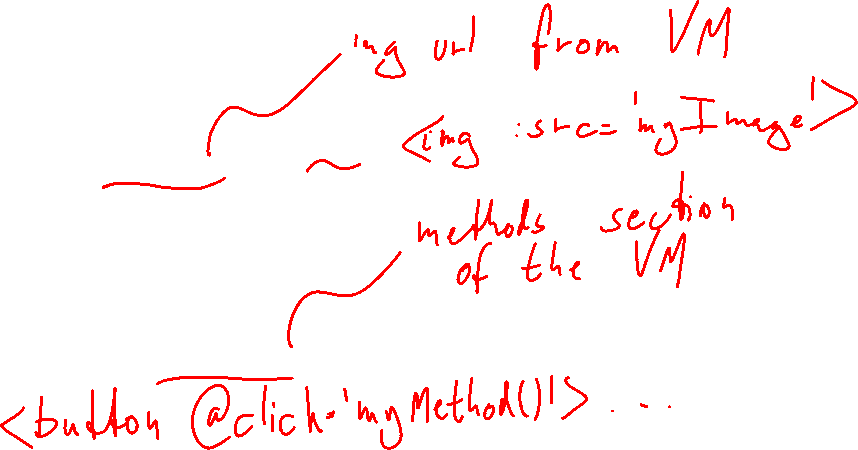 img url from VM
<img :src='myImage'>
methods section
of the VM
<button @click='myMethod()'> ...